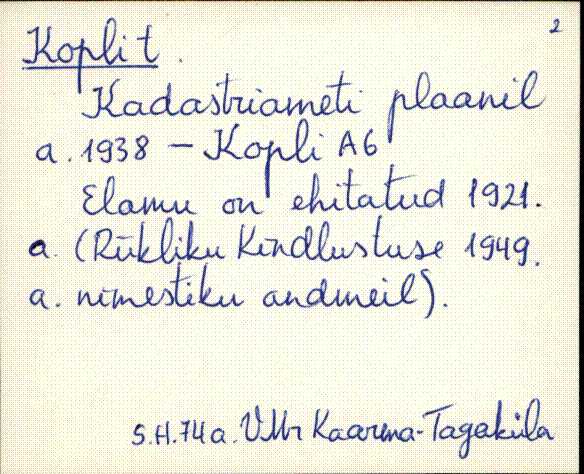 2
Kopli t.
Kadastriameti plaanil
a. 1938 – Kopli A6
Elamu on ehitatud 1921.
a. (Riikliku Kindlustuse 1949.
a. nimestiku andmeil).
S.H. 74 a. VMr Kaarma-Tagaküla